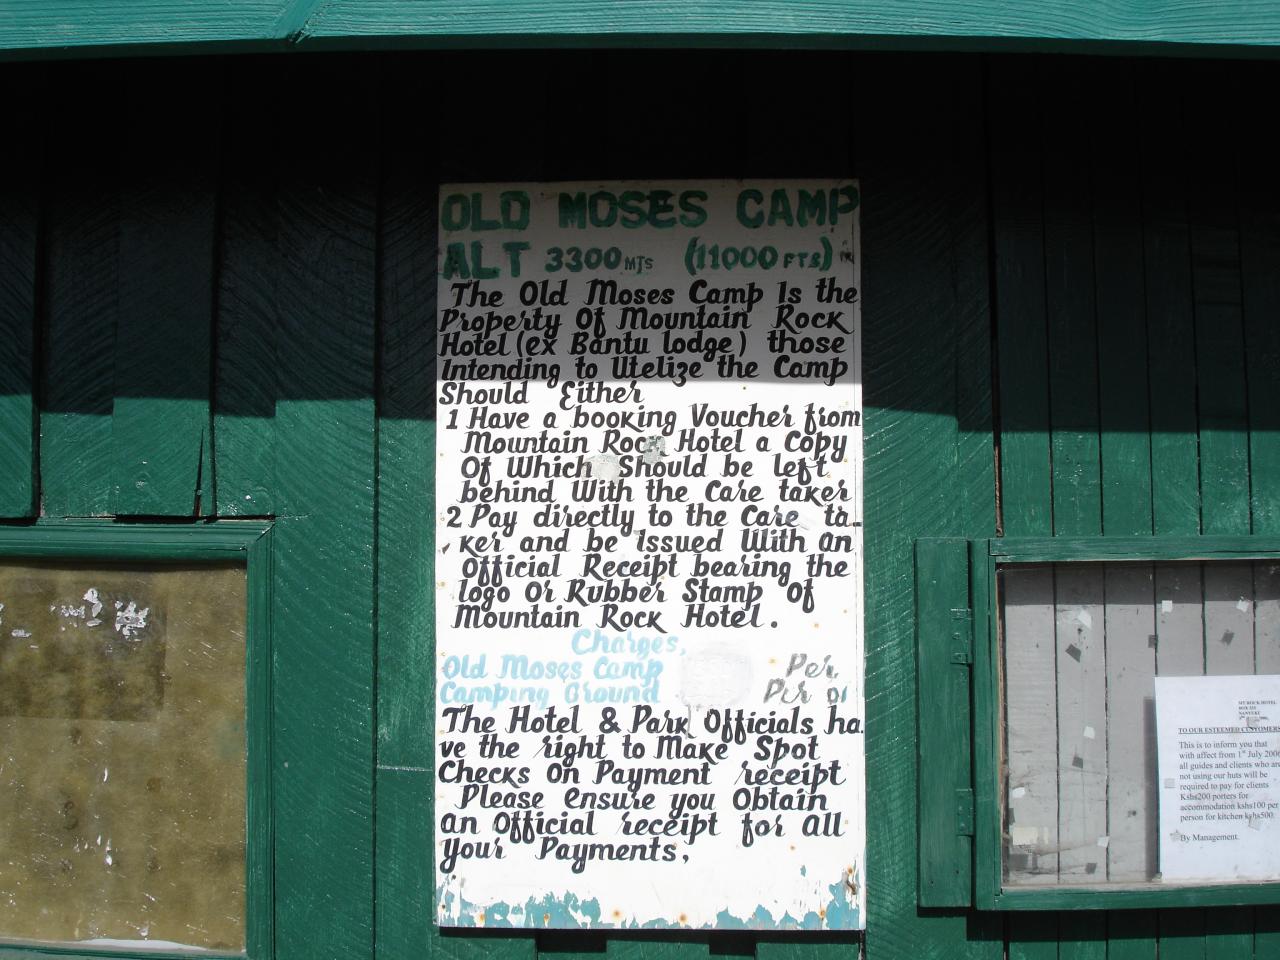 OLD MOSES CAMP
ALT 3300 MTS (11000 FTS)
The Old Moses Camp Is the
Property Of Mountain Rock
Hotel (ex Bantu lodge) those
Intending to Utelize the Camp
Should Either
1 Have a booking Voucher from
Mountain Rock Hotel a Copy
Of Which Should be left
behind With the Care taker
2 Pay directly to the Care ta-
ker and be Issued With an
Official Receipt bearing the
logo Or Rubber Stamp Of
Mountain Rock Hotel.
Charges,
Old Moses Camp Per
Camping Ground Per
The Hotel & Park Officials ha
ve the right to Make Spot
Checks On Payment receipt
Please ensure you Obtain
an Official receipt for all
your Payments,
MT ROCK HOTEL
BOX 333
NANYUKI
TO OUR ESTEEMED CUSTOMERS
This is to inform you that
with affect from 1st July 2006
all guides and clients who are
not using our huts will be
required to pay for clients
Kshs200 porters for
accommodation kshs100 per
person for kitchen kshs500.
By Management.